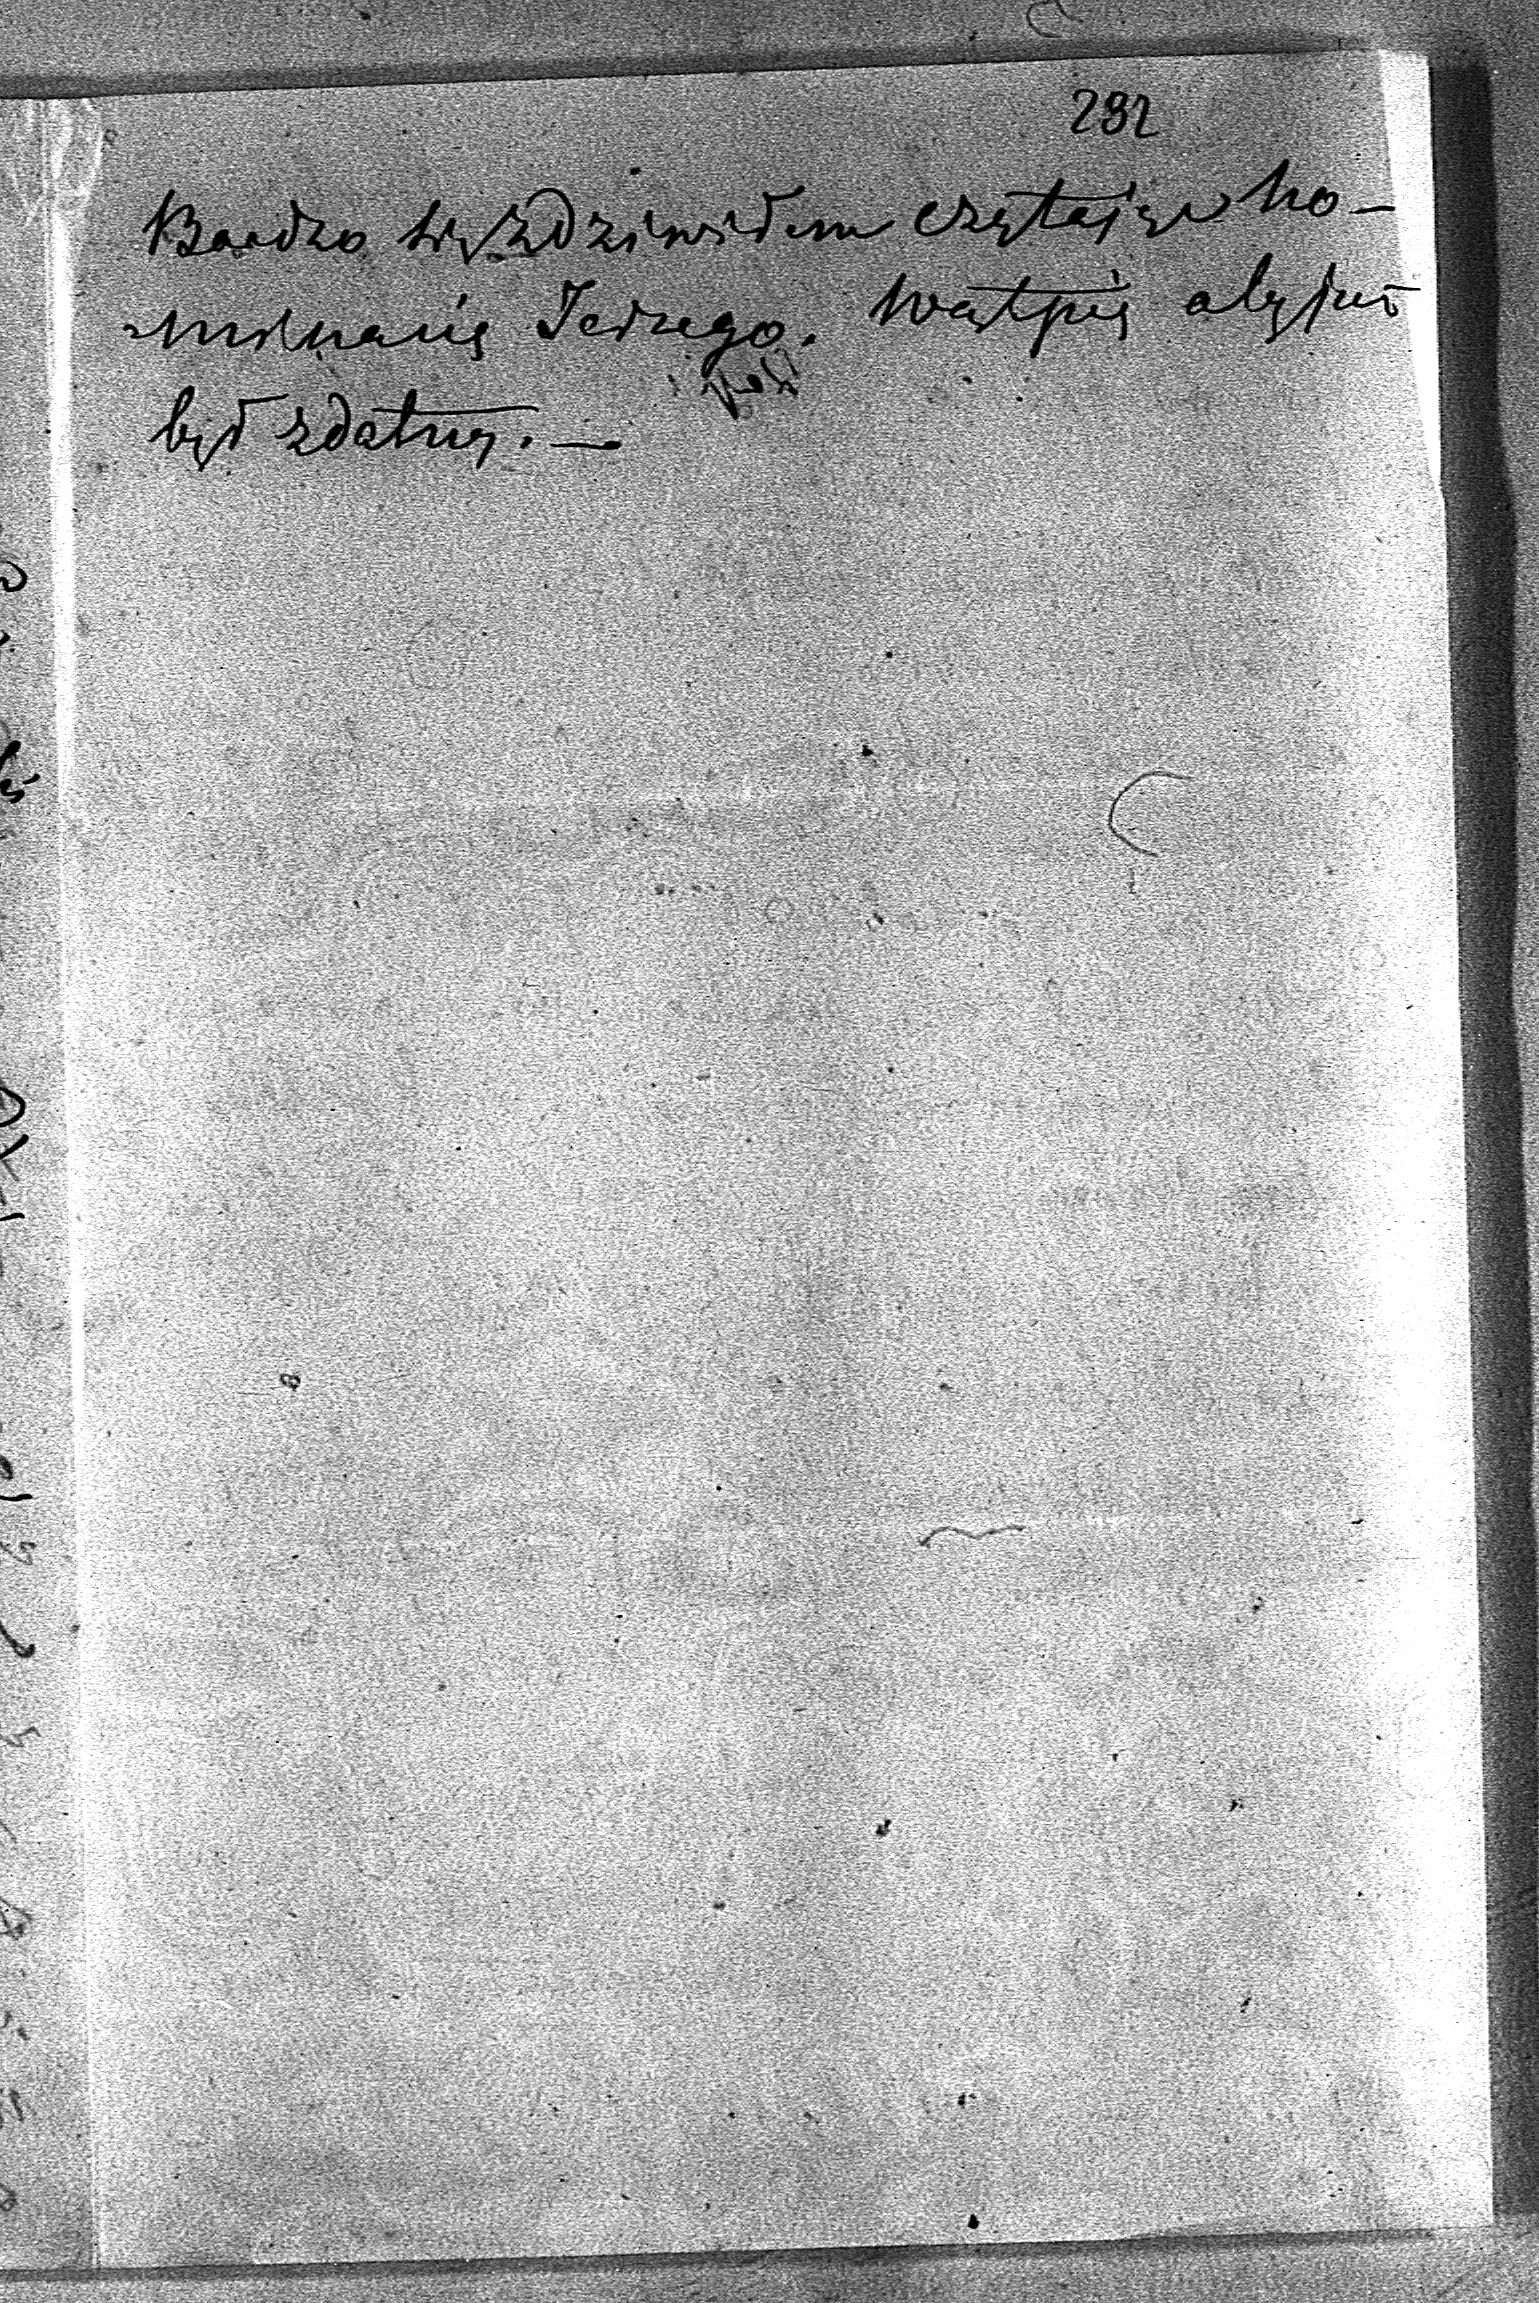 292
Bardzo się zdziwiłem czytając no-
minacię Jerzego. Wątpię aby już
był zdatny. —